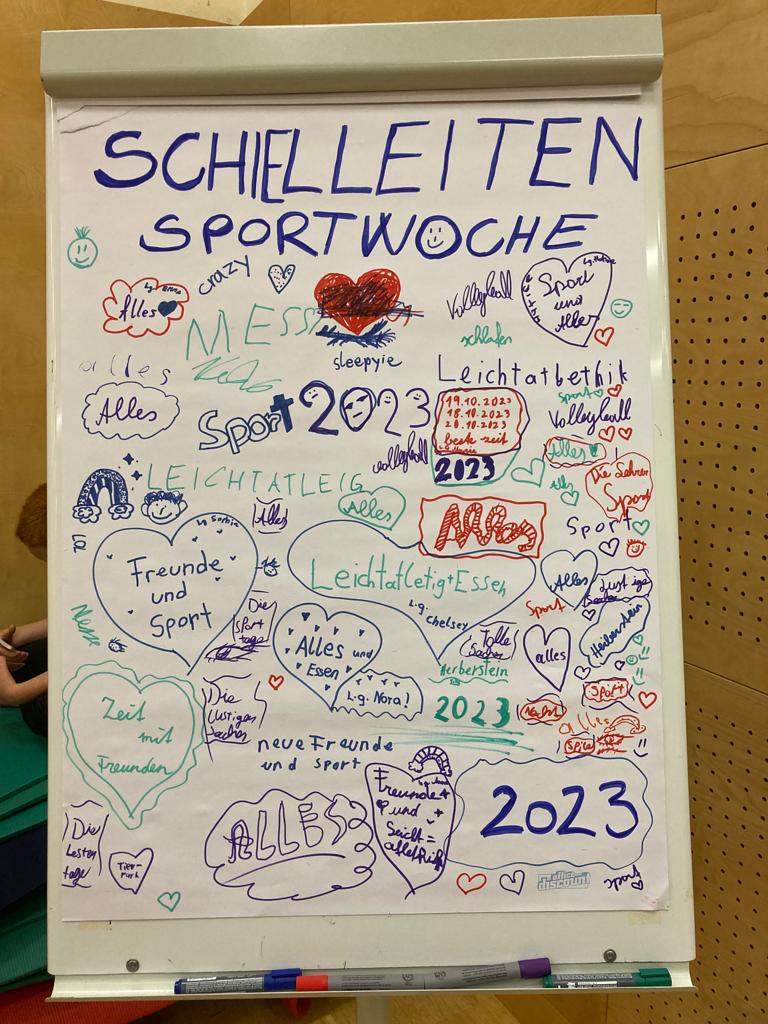 SCHIELLEITEN
SPORTWOCHE
crazy
Alles
Volleyball
Sport
und
Alles
MESSI
schlafen
sleepyie
Leichtatbethik
alles
Alles
Sport 2023
19.10.2023
18.10.2023
20.10.2023
beste zeit
2023
Sport
Volleyball
volleyball
Alles
Die Lehrer
Sport
LEICHTATLEIG
Alles
Alles
Alles
Sport
Lg Sorbie
Freunde
und
Sport
Leichtatletig+Essen
L.g. Chelsey
Alles
Lustige
Sachen
Sport
Messe
Die
Sport
tage
Alles und
Essen
Tolle
Sachen
alles
Herberstein
Herberstein
2023
L.g. Nora!
Zeit
mit
Freunden
Die
lustigen
Sachen
Nacht
Sport
alles
Spiele
neue Freunde
und Sport
Freunde +
und
2023
ALLES
Die
besten
tage
Tier-
park
office
discount
Sport